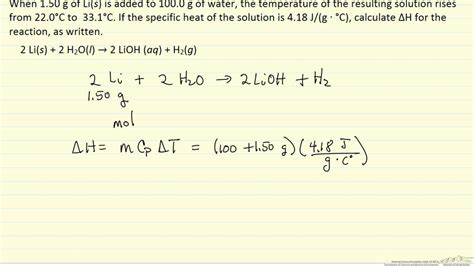 When 1.50 g of Li(s) is added to 100.0 g of water, the temperature of the resulting solution rises
from 22.0°C to 33.1°C. If the specific heat of the solution is 4.18 J/(g · °C), calculate ΔH for the
reaction, as written.
2 Li(s) + 2 H₂O(l) → 2 LiOH (aq) + H₂(g)
2 Li + 2 H₂O → 2 LiOH + H₂
1.50 g
mol
ΔH = m Cp ΔT = (100 + 1.50 g) (4.18 J / g · C°)